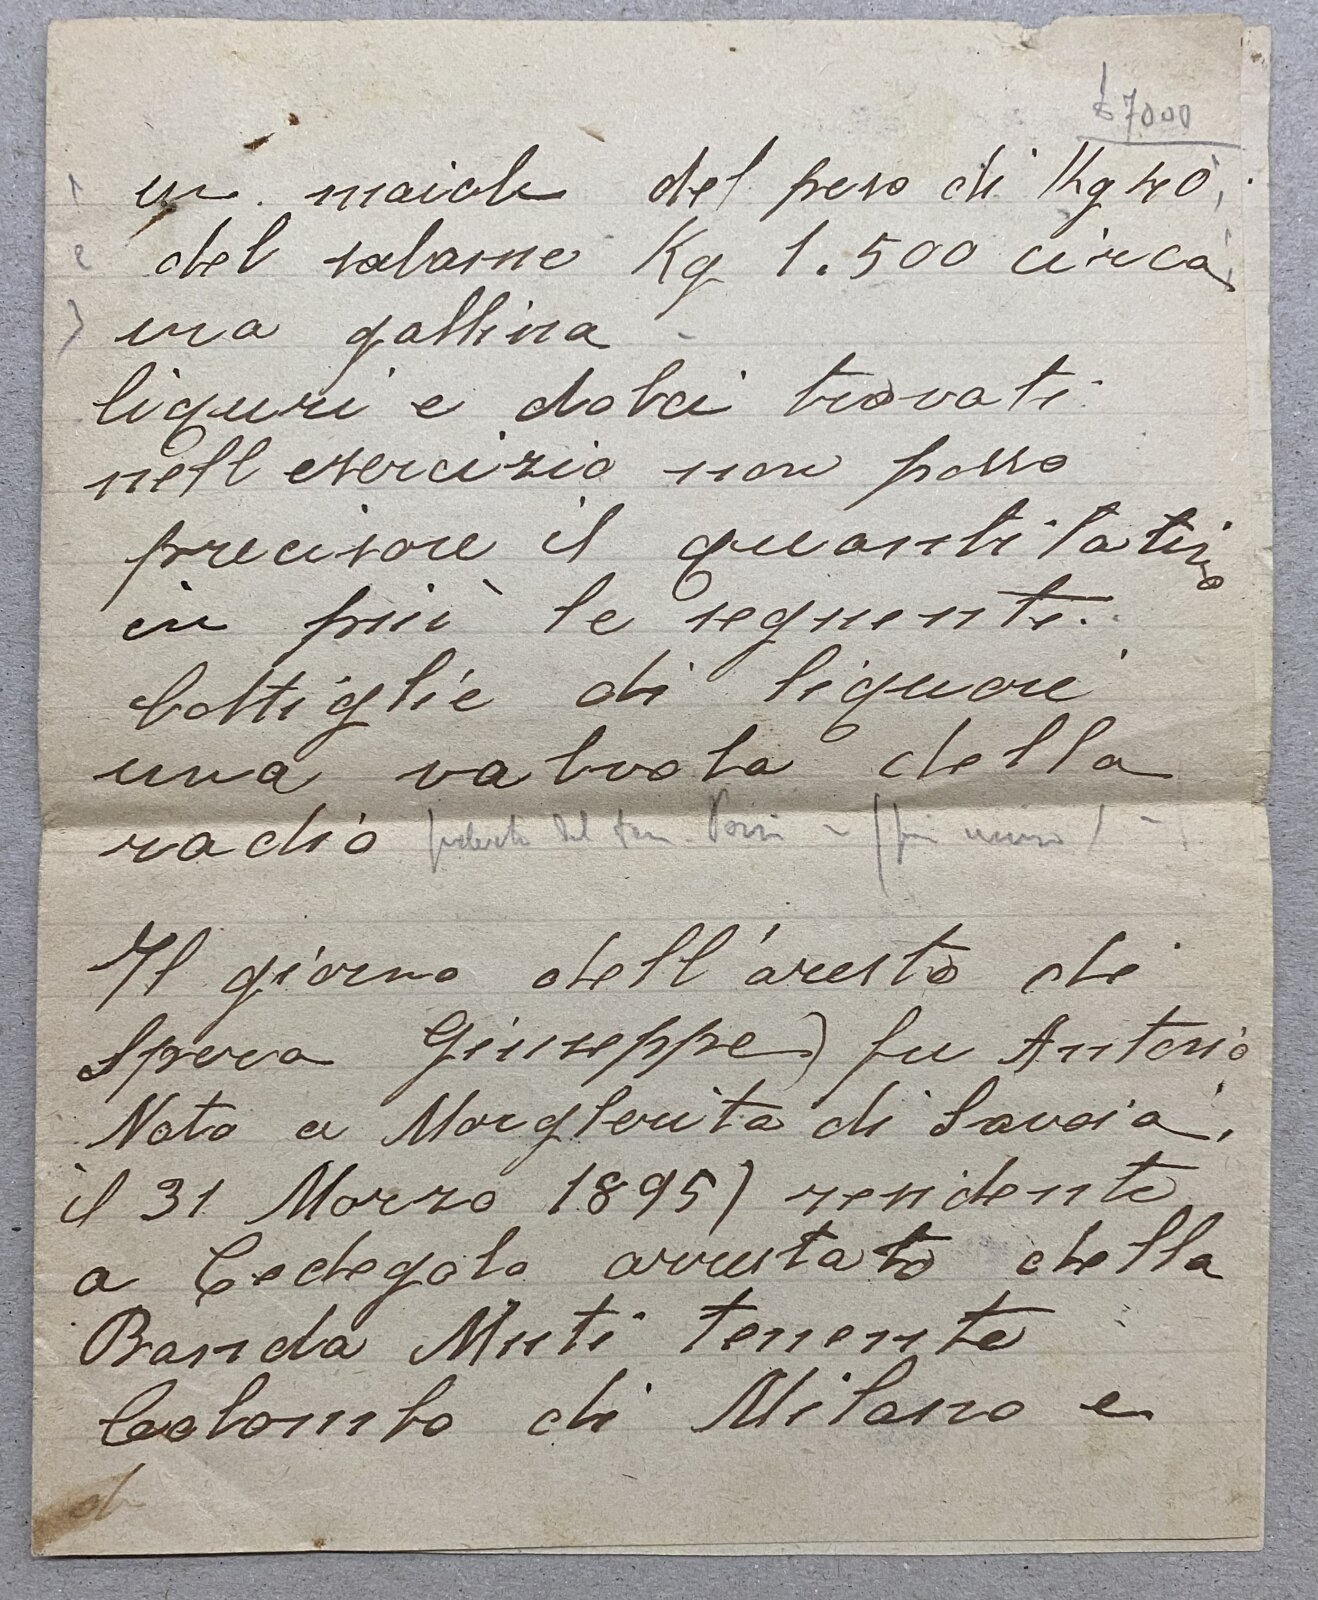 ₤ 7000
un maiale del peso di Kg 40,
del salame Kg 1.500 circa,
una gallina
liquri e dolci trovati
nell esercizio non posso
precisare il quantitativo
in più le seguenti
bottiglie di liquori
una valvola della
radio
Il giorno dell'aresto di
Spera Giuseppe) fu Antonio
Nato a Margherita di Savoia,
il 31 Marzo 1895) residente
a Cedegolo arrestato della
Banda Muti tenente
Colombo di Milano e